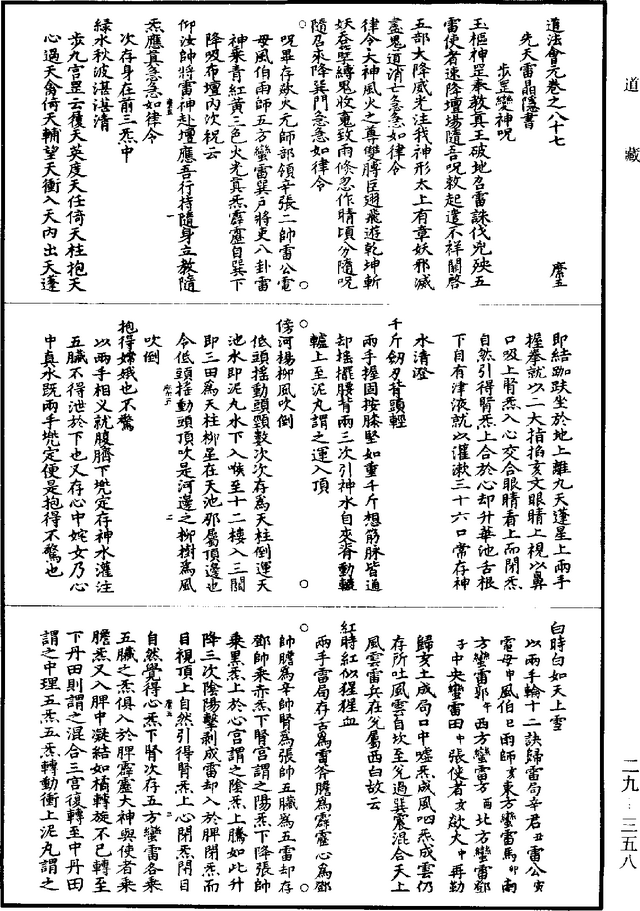 道藏
道法會元卷之八十七
席五
先天雷晶隱書
步罡變神呪
玉樞神罡奉教真王破地召雷誅伐兇殃五
雷使者速降壇場隨吾呪敕起遣不祥開啓
五部大降威光注我神形太上有章妖邪滅
盡鬼道消亡急急如律令
律令大神風火之尊變膊臣翅飛遊乾坤斬
妖吞孽縛鬼收魔致雨倏忽作晴頃分隨呪
隨召來降巽門急急如律令
呪畢存欻火元帥部領辛張二帥雷公電
母風伯雨師五方蠻雷巽戶將吏八卦雷
神乘青紅黃三色火光真炁霹靂自巽下
降吸布壇內次祝云
仰汝帥將雷神赴壇應吾行持隨身立教隨
炁應真急急如律令
次存身在前三炁中
綠水秋波湛湛清
步九宮罡云覆天英度天任倚天柱抱天
心過天禽倚天輔望天衝入天內出天蓬
即結跏趺坐於地上離九天蓬星上兩手
握拳就以二大指掐亥文眼睛上視以鼻
口吸上腎炁入心交合眼睛看上而閉炁
自然引得腎炁上合於心却升華池舌根
下自有津液就以灌漱三十六口常存神
水清澄
千斤劒刃背頭輕
兩手握固按膝堅如重千斤想筋脉皆通
却搖擺腰背兩三次引神水自夾脊動轆
轤上至泥丸謂之運入頂
傍河楊柳風吹倒
低頭搖動頭頸數次次存為天柱倒運天
池水即泥丸水下入喉至十二樓入三關
即三田為天柱柳星在天池邪屬頂邊也
今低頭搖動頭頂吹是河邊之柳樹為風
吹倒
抱得嫦娥也不驚
以兩手相叉就腹臍下兜定存神水灌注
五臟不得泄於下也又存心中姹女乃心
中真水既兩手兜定便是抱得不驚也
白時白如天上雪
以兩手輪十二訣歸雷局辛君丑雷公寅
電母甲風伯巳雨師亥東方蠻雷馬卯南
方蠻雷郭午西方蠻雷方酉北方蠻雷鄧
子中央蠻雷田中張使者亥欻火中再勒
歸亥土成局口中噓炁成風呬炁成雲仍
存所吐風雲自坎至兌過巽震混合天上
風雲雷兵在兌屬西白故云
紅時紅似猩猩血
兩手雷局存舌為雷斧膽為霹靂心為鄧
帥膽為辛帥腎為張帥五臟為五雷却存
鄧帥乘赤炁下腎宮謂之陽炁下降張帥
乘黑炁上於心宮謂之陰炁上騰如此升
降三次陰陽擊剥成雷却入於脾閉炁而
目視頂上自然引得腎炁上心閉炁閉目
自然覺得心炁下腎次存五方蠻雷各乘
五臟之炁俱入於脾霹靂大神與使者乘
膽炁又入脾中凝結如橘轉旋不已轉至
下丹田則謂之混合三宮復轉至中丹田
謂之中理五炁五炁轉動衝上泥丸謂之
二九·三五八